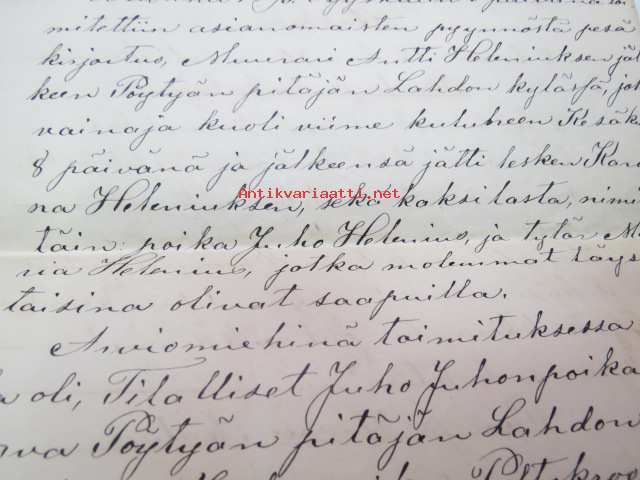 mitettiin asianomaisten pyynnöstä pesä
kirjoitus, Muurari Antti Heleniuksen jäl
keen Pöytyän pitäjän Lahdon kylässä, jok
vainaja kuoli viime kuluneen Kesäk
8 päivänä ja jälkeensä jätti lesken Kar
Antikvariaatti.net
na Heleniuksen, sekä kaksi lasta, nimit
täin: poika Juho Helenius, ja tytär M
ria Helenius, jotka molemmat täys
taisina olivat saapuilla.
Arviomiehinä toimituksessa
oli, Tilalliset Juho Juhonpoika
Pöytyän pitäjän Lahdon